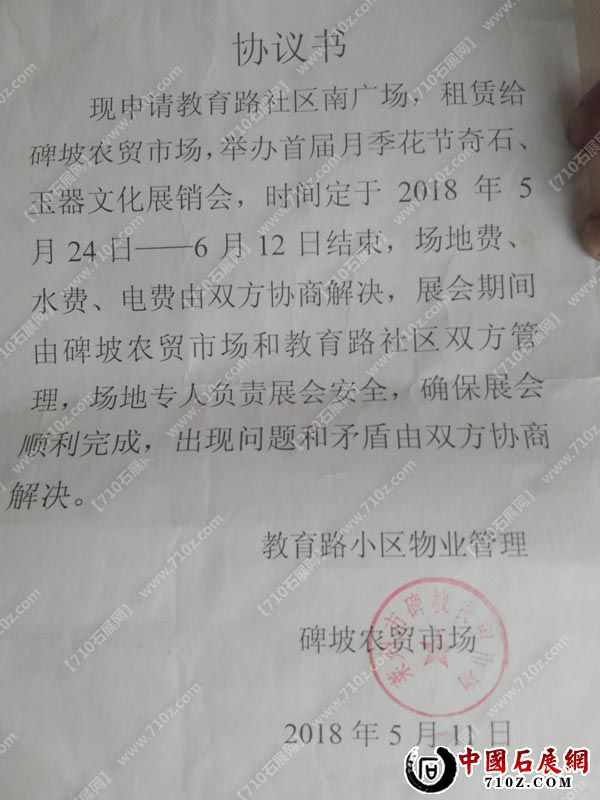 协议书
现申请教育路社区南广场，租赁给
碑坡农贸市场，举办首届月季花节奇石、
玉器文化展销会，时间定于 2018 年 5
月 24 日——6 月 12 日结束，场地费、
水费、电费由双方协商解决，展会期间
由碑坡农贸市场和教育路社区双方管
理，场地专人负责展会安全，确保展会
顺利完成，出现问题和矛盾由双方协商
解决。
教育路小区物业管理
碑坡农贸市场
莱州市碑坡农贸市场
2018 年 5 月 11 日
中國石展網
710z.com
【710石展网】
www.710z.com